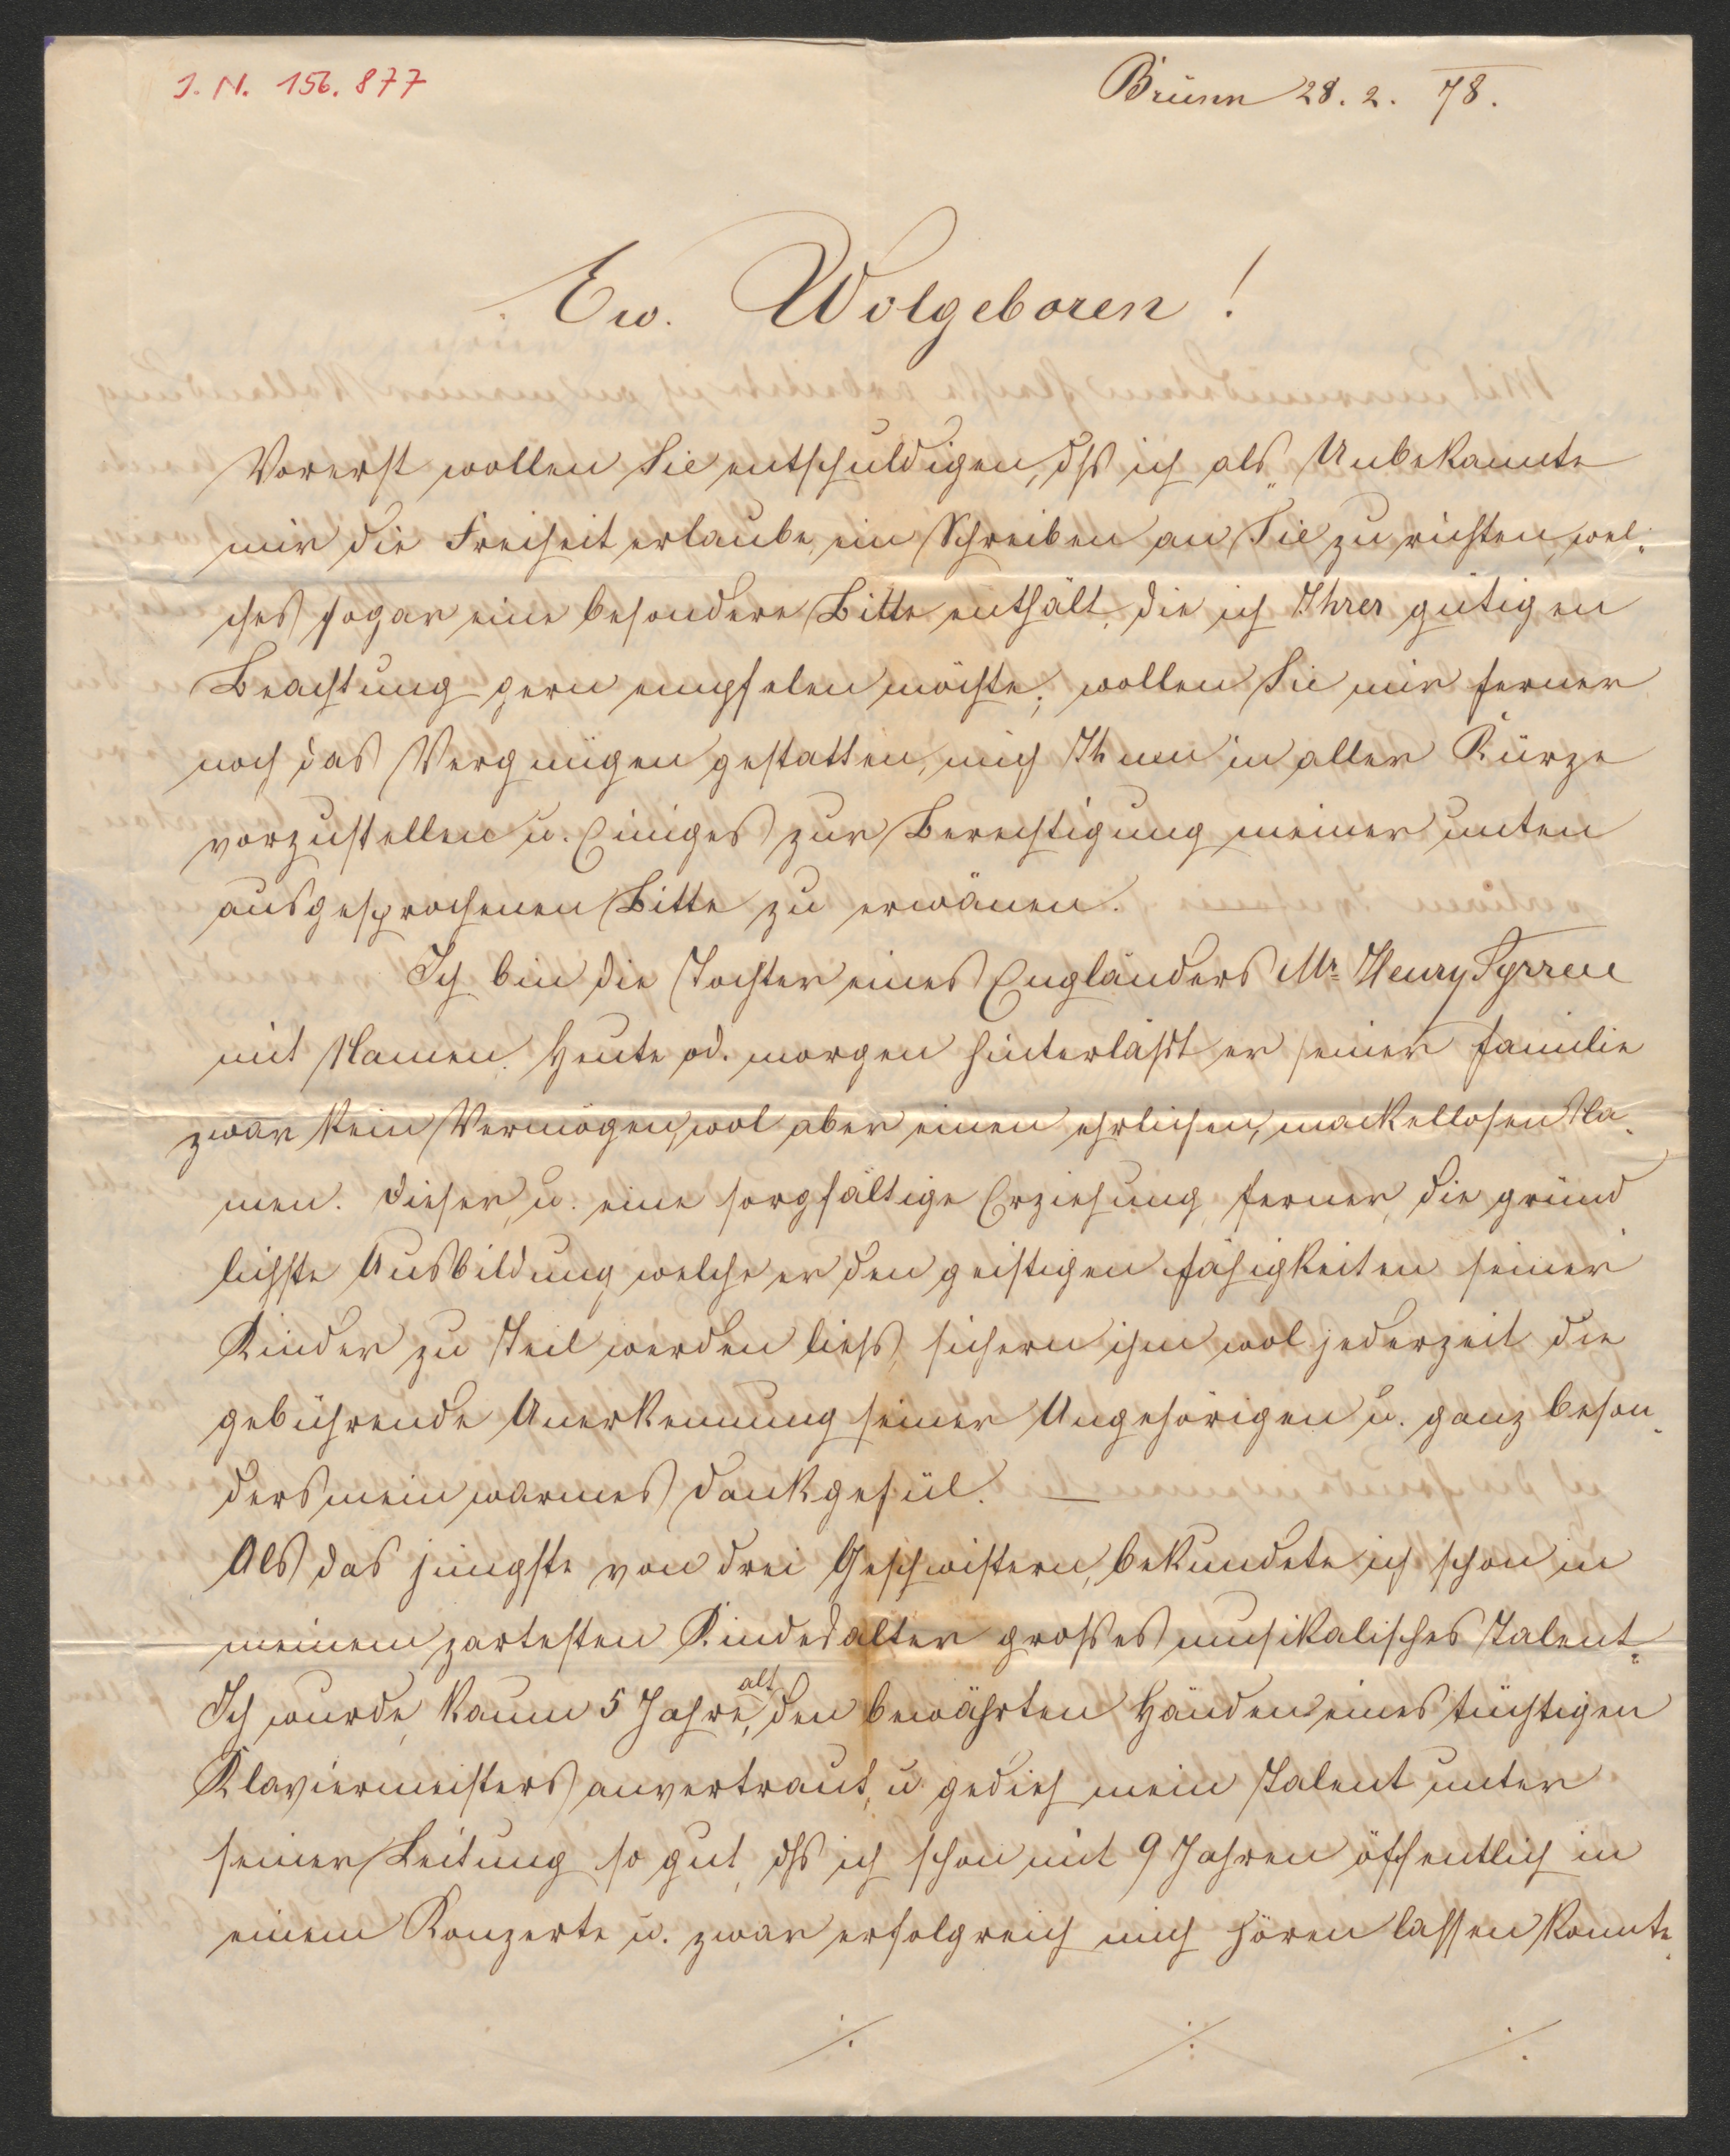 J. N. 156.877
Brünn 28. 2. 78.
Ew. Wolgeboren!
Vorerst wollen Sie entschuldigen, dſs ich als Unbekannte
mir die Freiheit erlaube, ein Schreiben an Sie zu richten, wel-
ches sogar eine besondere Bitte enthält, die ich Ihrer gütigen
Beachtung gern empfelen möchte; wollen Sie mir ferner
noch das Vergnügen gestatten, mich Ihnen in aller Kürze
vorzustellen u. Einiges zur Berechtigung meiner unten
ausgesprochenen Bitte zu erwänen.
Ich bin die Tochter eines Engländers Mr. Henry
mit Namen. Heute od. morgen hinterläſst er seiner Familie
zwar kein Vermögen, wol aber einen ehrlichen, makellosen Na-
men. Dieser, u. eine sorgfältige Erziehung, ferner, die gründ
lichste Ausbildung welche er den geistigen Fähigkeiten seiner
Kinder zu Teil werden lieſs, sichern ihm wol jederzeit die
gebührende Anerkennung seiner Angehörigen u. ganz beson-
ders mein warmes Dankgefül. —
Als das jüngste von drei Geschwistern, bekundete ich schon in
meinem zartesten Kindesalter groſses musikalisches Talent.
Ich wurde, kaum 5 Jahre alt, den bewährten Händen eines tüchtigen
Klaviermeisters anvertraut, u. gedieh mein Talent unter
seiner Leitung so gut, dſs ich schon mit 9 Jahren öffentlich in
einem Konzerte u. zwar erfolgreich mich hören lassen konnte.
./. ./. ./.